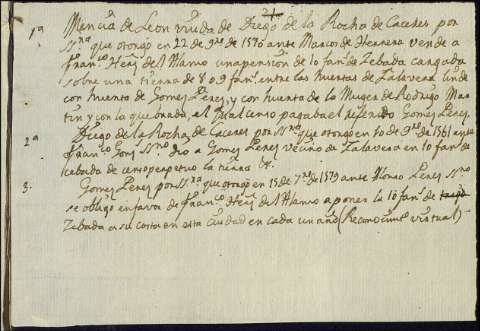 21
1ª Mencia de Leon viuda de Diego de la Rocha de Caceres por
SSrª que otorgó en 22 de 9re de 1576 ante Marcos de Herrera vende a
Franco Herz del Alamo una pension de 10 fans de Zebada cargada
sobre una tierra de 8 o 9 fans entre las huertas de Talavera linde
con huerto de Gomez Perez, y con huerta de la Muger de Rodrigo Mar
tin y con la quebrada, el qual censo pagaba el referido Gomez Perez.
2ª Diego de la Rocha de Caceres por SSrª que otorgó en 10 de 9re de 1561 ante
Franco Gonz SSno dio a Gomez Perez vecino de Talavera en 10 fans de
cebada de censo perpetuo la tierra &.
3. Gomez Perez por SSrª que otorgó en 15 de 7re de 1579 ante Alonso Perez SSno
se obligó en favor de Franco Herz del Alamo a poner la 10 fans de trigo
Zebada a su costa en esta ciudad en cada un año (Reconocimto virtual)